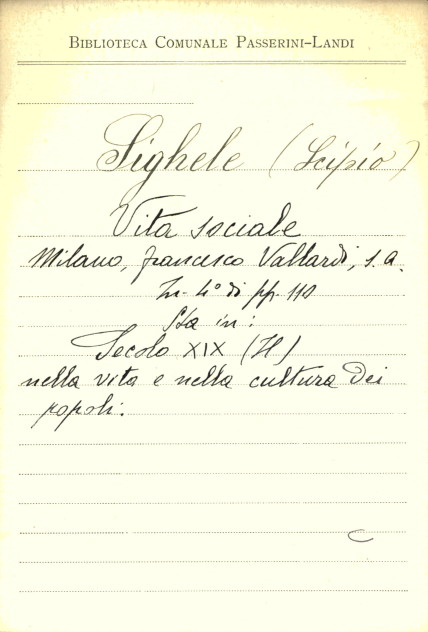 BIBLIOTECA COMUNALE PASSERINI-LANDI
Sighele (Scipio)
Vita sociale
Milano, Francesco Vallardi, s.a.
In-4° di pp. 118
Sta in:
Secolo XIX (Il)
nella vita e nella cultura dei
popoli.